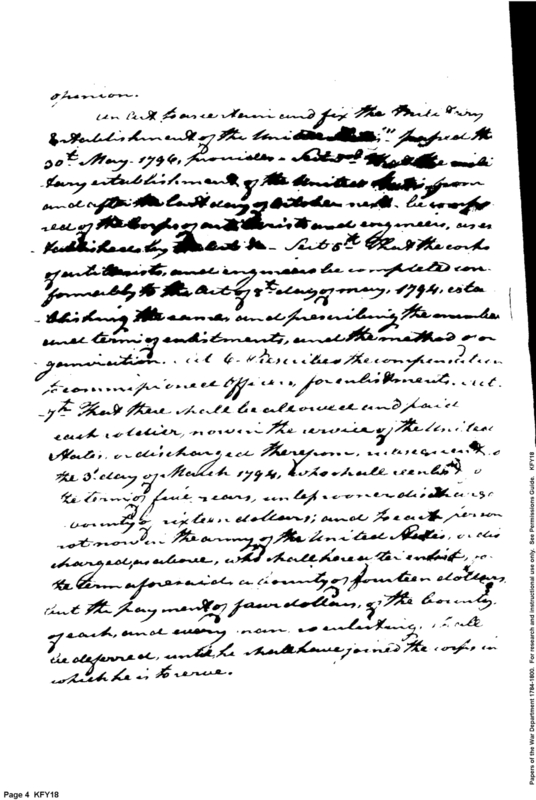 opinion.
"An Act to ascertain and fix the Military
Establishment of the United States" passed the
30th May 1796, provides - Sect 2nd That the mili
tary establishment of the United States from
and after the last day of October next be compo
sed of the Corps of artillerists and engineers, as es
tablished by the Act &c - Sect 5th That the corps
of artillerists, and engineers be completed con-
formably to the Act of 8th day of may, 1794, esta
blishing the same and prescribing the number
and term of enlistments, and the method of or
ganization. Sect 6. Prescribes the compensation
to commissioned Officers, for enlistments. Sect.
7th That there shall be allowed and paid
each soldier, now in the service of the United
States, or discharged therefrom, subsequent to
the 3d day of March 1794, who shall reenlist for
the term of five years, unless sooner discharged
bounty of sixteen dollars; and to each person
not now in the army of the United States, or dis
charged, as above, who shall hereafter enlist, for
the term aforesaid a bounty of fourteen dollars,
but the payment of four dollars, of the bounty
of each, and every man so enlisting, shall
be deferred, until he shall have joined the corps in
which he is to serve.
Page 4 KFY18
Papers of the War Department 1784-1800. For research and instructional use only. See Permissions Guide. KFY18